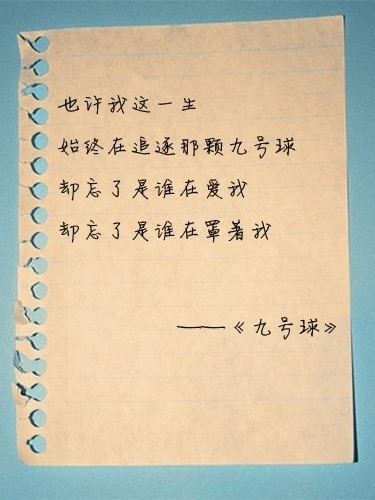 也许我这一生
始终在追逐那颗九号球
却忘了是谁在爱我
却忘了是谁在罩著我
——《九号球》